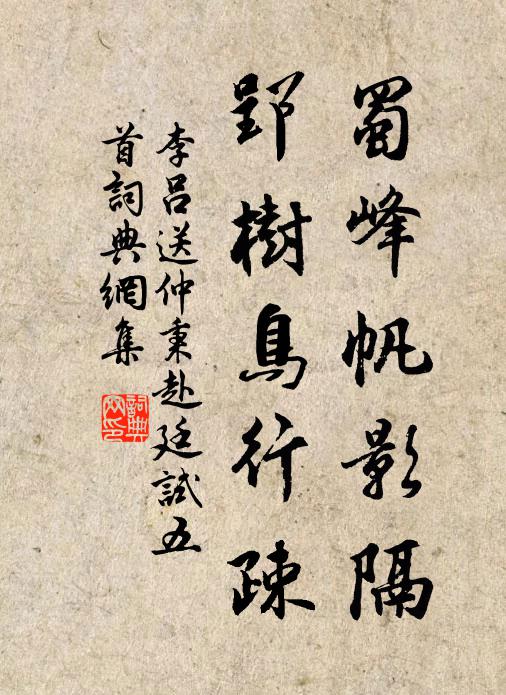 蜀峰帆影隔
郢樹鳥行疎
李呂送仲秉赴廷試五
首詞典網集
詞典
网印